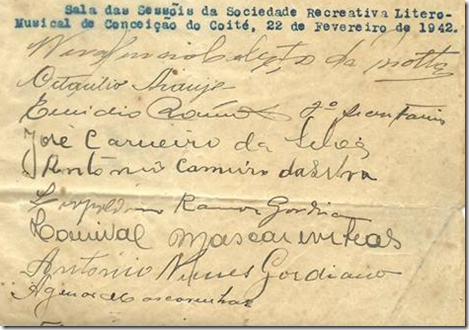 Sala das Sessõis da Sociedade Recreativa Litero-
Musical de Conceição do Coité, 22 de Fevereiro de 1942.
da Motta
Octavio Araujo
Emidio Ramos 2º Secretario
José Carneiro da Silva
Antonio Carneiro da Silva
Leopoldino Ramos Gordiano
Mascarenhas
Antonio Nunes Gordiano
Agenor Mascarenhas